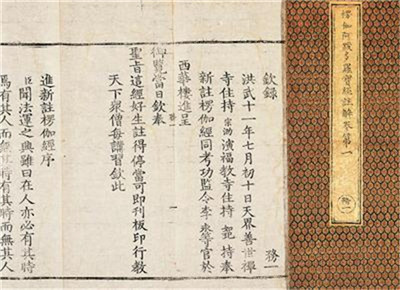 楞伽阿跋多羅寶經註解卷第一
欽錄
務一
洪武十一年七月初十日天界善世禪
寺住持宗泐演福教寺住持如玘持奉
新註楞伽經同考功監令李来等官於
西華樓進呈
御覽當日欽奉
聖旨這經好生註得停當可即刊板印行教
天下衆僧每講習欽此
進新註楞伽經序
臣聞法運之興雖曰在人亦必有其時
焉有其人而無其時有其時而無其人